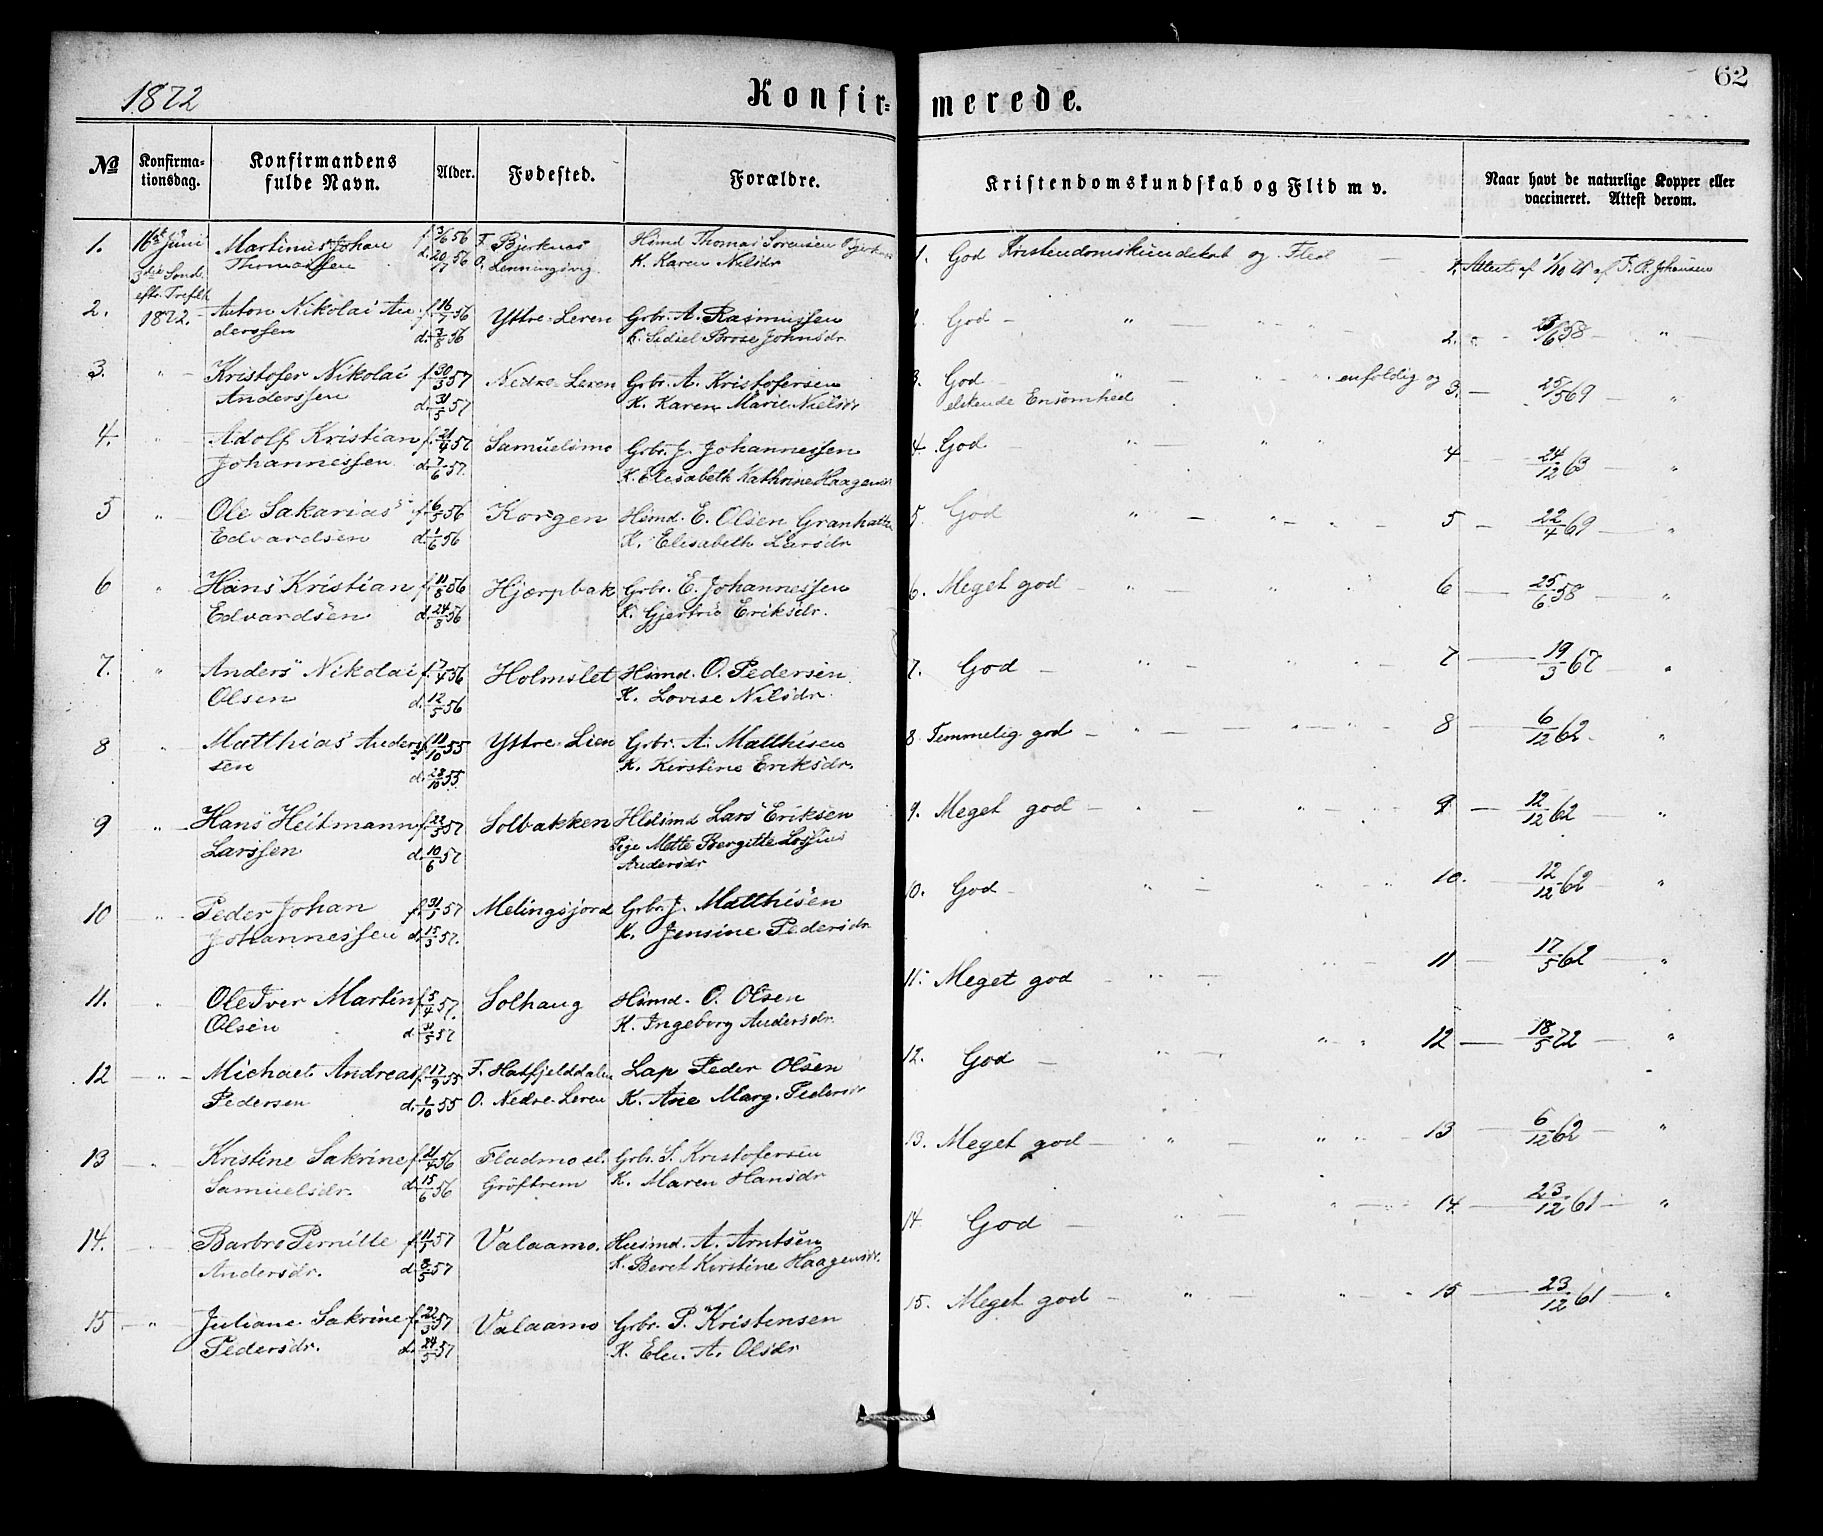 1872
Konfir=
merede.
62
No
Konfirma-
tionsdag.
Konfirmandens
fulde Navn.
Alder.
Fødested.
Forældre.
Kristendomskundskab og Flid m v.
Naar havt de naturlige Kopper eller
vaccineret. Attest derom.
1. 16de Juni Martinus Johan f. 3/6 56 F. Bjerknes Husmd Thomas Sørensen
3die Sønd. Thomassen d. 56 O. Lenningsvig. K. Karen Nilsdr
1. God Kristendomskundskab og Flid — 1. Attest af af Johansen
eftr. Trefth
2. 1872. — Anton Nikolai An f. 16/7 56 Yttre-Leren Grbr. A. Rasmussen
derssen d. 3/8 56 K. Sidsel Brose Johnsdr.
God — " — " — 2. " — 58 — "
3. " — Kristofer Nikolai f. 30/3 57 Nedre-Leren Grbr. A. Kristofersen
Anderssen d. 31/5 57 K. Karen Marie Nielsdr
3. God — " — " — " enfoldig og 3. — 25/5 69 — "
elskende Ensomhed
4. " Adolf Kristian f. 21/4 57 Samuelsmo Grbr. J. Johannessen
Johannessen d. 7/6 57. K. Elisabeth Kathrine Haagensdr
4. God — " — " " 4 — 24/12 63 "
5 " Ole Sakarias f. 6/5 56 Korgen Husmd. E. Olsen Granhatten
Edvardsen d. 1/6 56 K. Elisabeth Larsdr
5. God " — " — " — 5 — 22/4 69 — "
6 " Hans Kristian f. 11/8 56 Hjærpbak Grbr. E. Johannessen
Edvardsen d. 24/8 56 K. Gjertrud Eriksdr.
6. Meget god — " — " " 6 — 25/6 58 — "
7. " Anders Nikolai f. 7/4 56 Holmslet Husmd. O. Pedersen
Olsen d. 12/5 56 K. Lovise Nilsdr.
7. God — " — " " — 7 — 19/3 67 "
8 " Matthias Anders f. 11/10 55 Yttre-Lien Grbr. A. Matthisen
sen d. 28/10 55. K. Kirstine Eriksdr.
8. Temmelig god — " — " — " — 8 — 6/12 62. "
9 " — Hans Heitmann f. 22/3 57 Solbakken Husmd Lars Eriksen
Larssen d. 10/6 57 Pige Mette Bergitte
Andersdr
9. Meget god — " — " — " 9 — 12/12 62 — "
10 — " — Peder Johan f. 31/3 57 Melingsjord Grbr. J. Matthisen
Johannessen d. 15/5 57. K. Jensine Pedersdr
10. God — " — " — " 10. — 12/12 62 — "
11. " Ole Iver Martin f. 5/4 57. Solhaug Husmd. O. Olsen
Olsen d. 31/5 57 K. Ingeborg Andersdr.
11. Meget god — " — " 11 — 17/5 62 — "
12 — " — Michael Andreas f. 17/9 55 F. Hatfjelddalen Lap Peder Olsen
Pedersen d. 1/10 55 O. Nedre-Leren K. Ane Marg. Pedersdr
12. God — " — " — " 12 — 18/5 72 — "
13 — " Kristine Sakrine f. 21/4 56 Fladmo el. Grbr. S. Kristofersen
Samuelsdr. d. 15/6 56 Gröftrem K. Maren Hansdr
13. Meget god — " — " — 13 — 6/12 62 — "
14. — " — Barbro Pernille f. 57 Valaamo. Husmd. A. Arntsen
Andersdr. d. 57 K. Beret Kirstine Haagensdr.
14 God — " — " — " 14. — 23/12 61 — "
15 — " — Juliane Sakrine f. 22/3 57 Valaamo Grbr. P. Kristensen
Pedersdr. d. 24/5 57 K. Elen. A. Olsdr
15. Meget god — " — " — " 15 — 23/12 61 — "